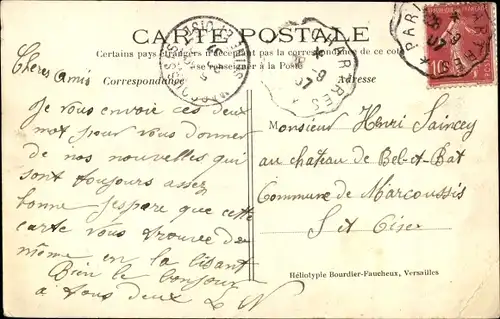 CARTE POSTALE
Certains pays étrangers n'acceptant pas la correspondance de ce coté
se renseigner à la Poste
Correspondance
Adresse
Chères Amis
Je vous envoie ces deux
mot pour vous donner
de nos nouvelles qui
sont toujours assez
bonne J'espare que cette
carte vous trouvee de
même en la lisant
Bien le bonjour
a tous deux L N
Monsieur Henri Saincey
au chateau de Bel-et-Bat
Commune de Marcoussis
S et Oise
Héliotypie Bourdier-Faucheux, Versailles
PARI
ARTRES
CHARTRES
10